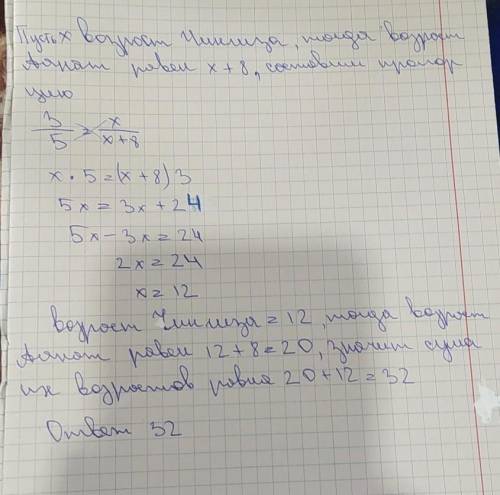 Пусть x возраст Чингиза, тогда возраст
Аянат равен x+8, составим пропор
цию
3/5 = x/x+8
x · 5 = (x+8) 3
5x = 3x + 24
5x - 3x = 24
2x = 24
x = 12
возраст Чингиза = 12, тогда возраст
Аянат равен 12+8=20, значит сума
их возрастов равна 20+12=32
Ответ 32